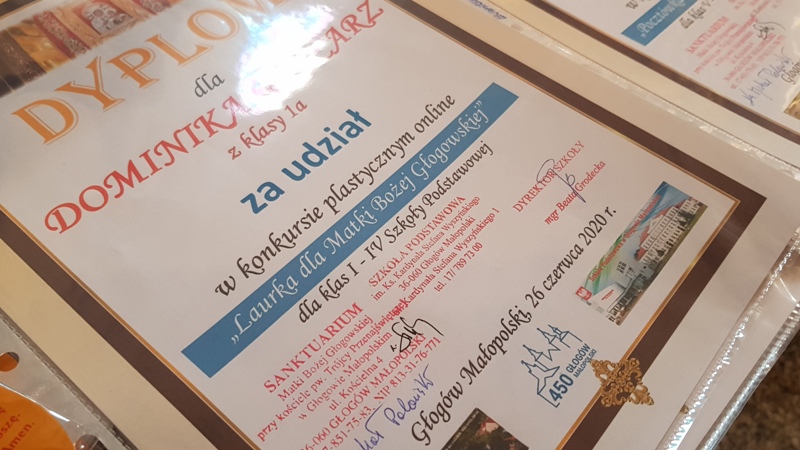 DYPLOM
dla
DOMINIKA
z klasy 1a
za udział
w konkursie plastycznym online
„Laurka dla Matki Bożej Głogowskiej”
dla klas I - IV Szkoły Podstawowej
SZKOŁA PODSTAWOWA
im. Ks. Kardynała Stefana Wyszyńskiego
36-060 Głogów Małopolski
Kardynała Stefana Wyszyńskiego 1
tel. 17/ 789 73 00
DYREKTOR SZKOŁY
mgr Beata Grodecka
SANKTUARIUM
Matki Bożej Głogowskiej
przy kościele pw. Trójcy Przenajświętszej
w Głogowie Małopolskim
ul. Kościelna
36-060 GŁOGÓW MAŁOPOLSKI
851-75-83 NIP 813-31-76-771
Głogów Małopolski, 26 czerwca 2020 r.
450 GŁOGÓW
MAŁOPOLSKI
dla klas
SANKTUARIUM
Amen.